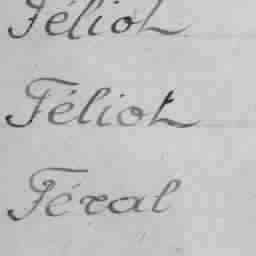 Féliot
Féliot
Féral